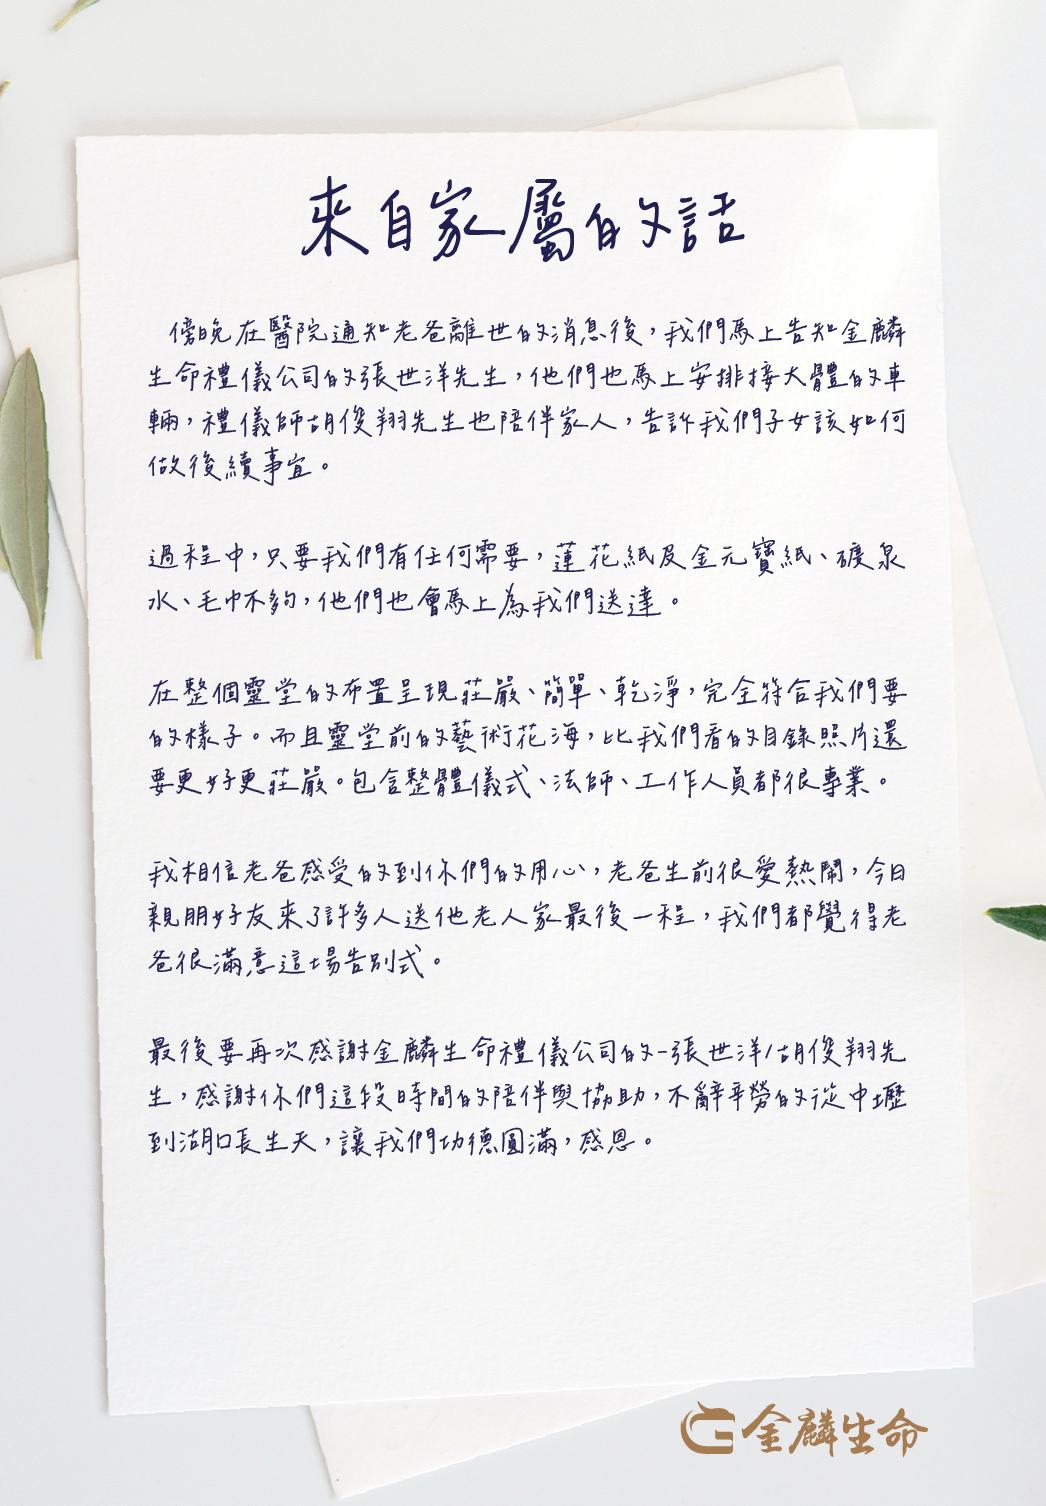 來自家屬的話
傍晚在醫院通知老爸離世的消息後，我們馬上告知金麟
生命禮儀公司的張世洋先生，他們也馬上安排接大體的車
輛，禮儀師胡俊翔先生也陪伴家人，告訴我們子女該如何
做後續事宜。
過程中，只要我們有任何需要，蓮花紙及金元寶紙、礦泉
水、毛巾不夠，他們也會馬上為我們送達。
在整個靈堂的布置呈現莊嚴、簡單、乾淨，完全符合我們要
的樣子。而且靈堂前的藝術花海，比我們看的目錄照片還
要更好更莊嚴。包含整體儀式、法師、工作人員都很專業。
我相信老爸感受的到你們的用心，老爸生前很愛熱鬧，今日
親朋好友來了許多人送他老人家最後一程，我們都覺得老
爸很滿意這場告別式。
最後要再次感謝金麟生命禮儀公司的-張世洋/胡俊翔先
生，感謝你們這段時間的陪伴與協助，不辭辛勞的從中壢
到湖口長生天，讓我們功德圓滿，感恩。
金麟生命